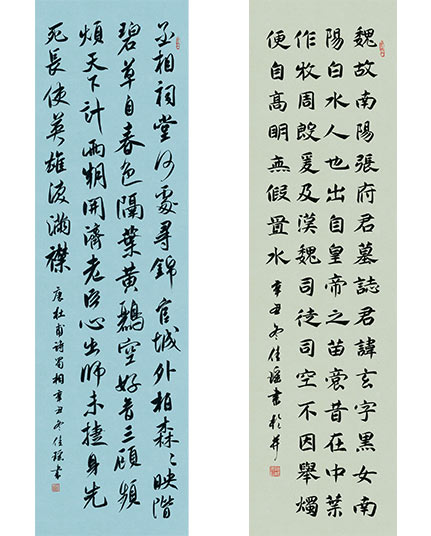 魏故南陽張府君墓誌君諱玄字黑女南
陽白水人也出自皇帝之苗裔昔在中葉
作牧周殷爰及漢魏司徒司空不因舉燭
便自高明無假置水
辛丑冬佳瑶書於并
丞相祠堂何處尋錦官城外柏森〻映階
碧草自春色隔葉黃鸝空好音三顧頻
煩天下計兩朝開濟老臣心出師未捷身先
死長使英雄淚滿襟
唐杜甫詩蜀相辛丑冬佳瑶書